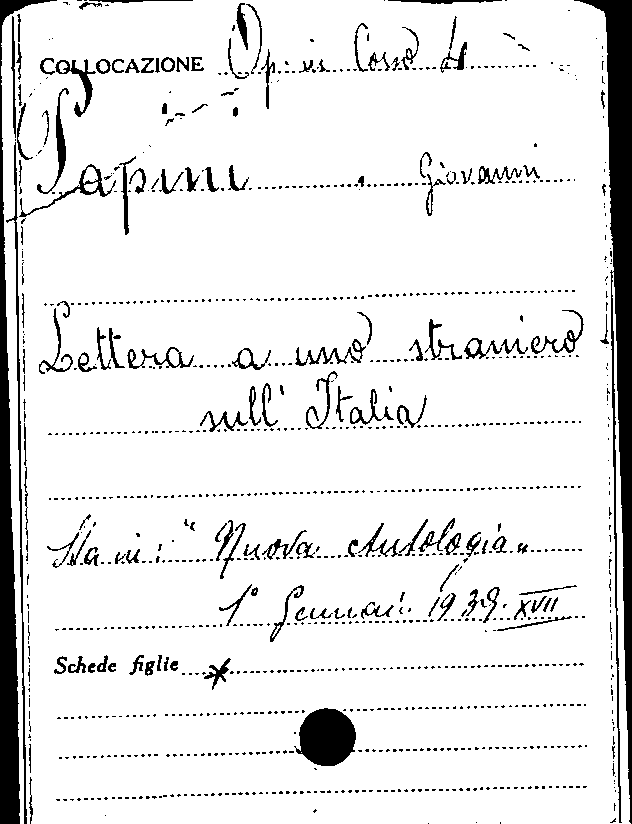 COLLOCAZIONE Op. in Corso 4
Papini, Giovanni
Lettera a uno straniero
sull' Italia
Sta in: "Nuova Antologia"
1° Gennai. 1939. XVII
Schede figlie *